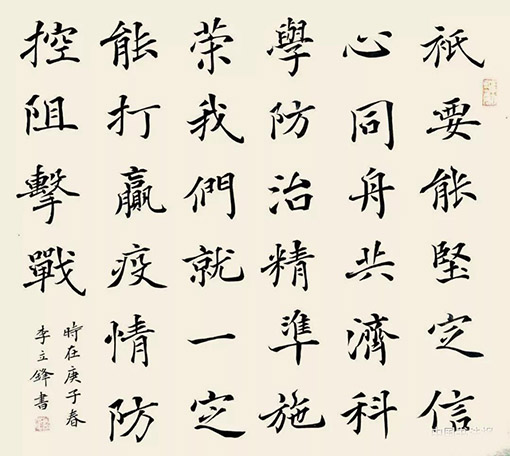 祇要能堅定信
心同舟共濟科
學防治精準施
荣我們就一定
能打贏疫情防
控阻擊戰
時在庚子春
李立鋒書